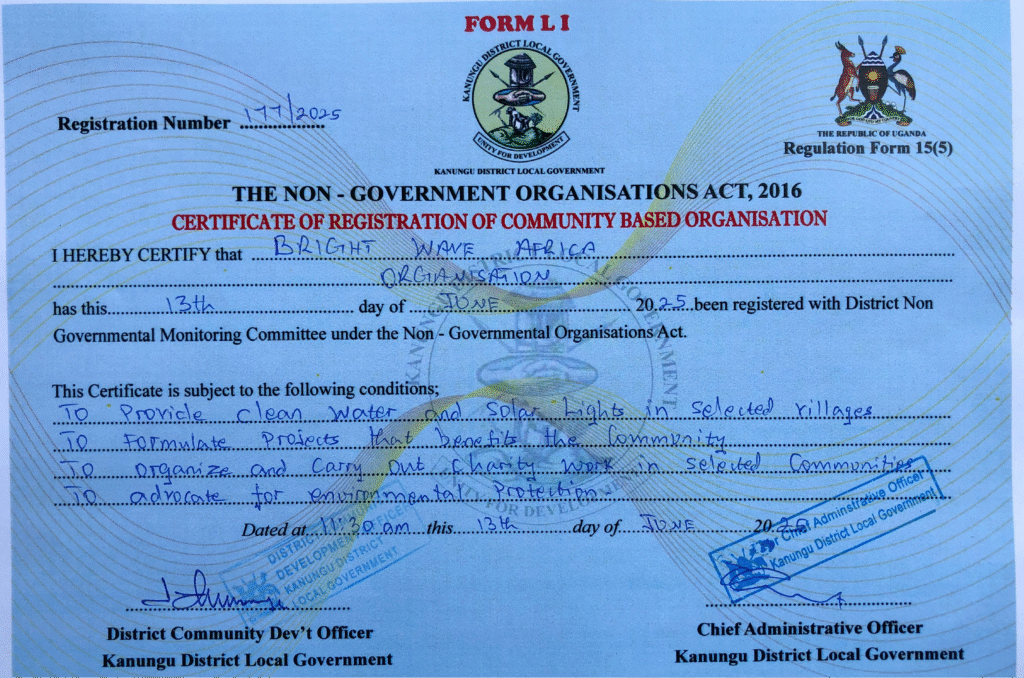 FORM L I
KANUNGU DISTRICT LOCAL GOVERNMENT
UNITY FOR DEVELOPMENT
KANUNGU DISTRICT LOCAL GOVERNMENT
Registration Number 177/2025
THE REPUBLIC OF UGANDA
Regulation Form 15(5)
THE NON - GOVERNMENT ORGANISATIONS ACT, 2016
CERTIFICATE OF REGISTRATION OF COMMUNITY BASED ORGANISATION
I HEREBY CERTIFY that BRIGHT WAVE AFRICA
ORGANISATION
has this 13th day of JUNE 2025 been registered with District Non
Governmental Monitoring Committee under the Non - Governmental Organisations Act.
This Certificate is subject to the following conditions;
To Provide clean water and solar Lights in selected villages
To Formulate Projects that benefits the Community
To organize and Carry Out Charity Work in selected Communities
To advocate for environmental Protection
Dated at 11:30am this 13th day of JUNE 2025
DISTRICT
DEVELOPMENT OFFICER
KANUNGU DISTRICT
LOCAL GOVERNMENT
For Chief Adminstrative Officer
Kanungu District Local Government
District Community Dev't Officer
Kanungu District Local Government
Chief Administrative Officer
Kanungu District Local Government